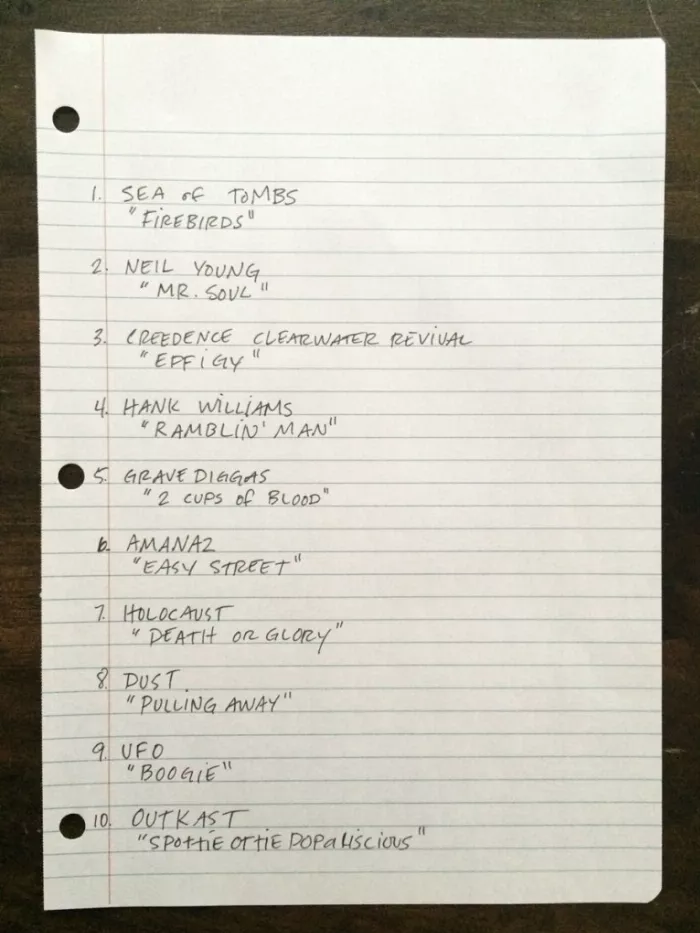 1. SEA OF TOMBS
"FIREBIRDS"
2. NEIL YOUNG
"MR. SOUL"
3. CREEDENCE CLEARWATER REVIVAL
"EPFIGY"
4. HANK WILLIAMS
"RAMBLIN' MAN"
5. GRAVE DIGGAS
"2 CUPS OF BLOOD"
6. AMANAZ
"EASY STREET"
7. HOLOCAUST
"DEATH OR GLORY"
8. DUST.
"PULLING AWAY"
9. UFO
"BOOGIE"
10. OUTKAST
"SPOTTIE OTTIE DOPALISCIOUS"